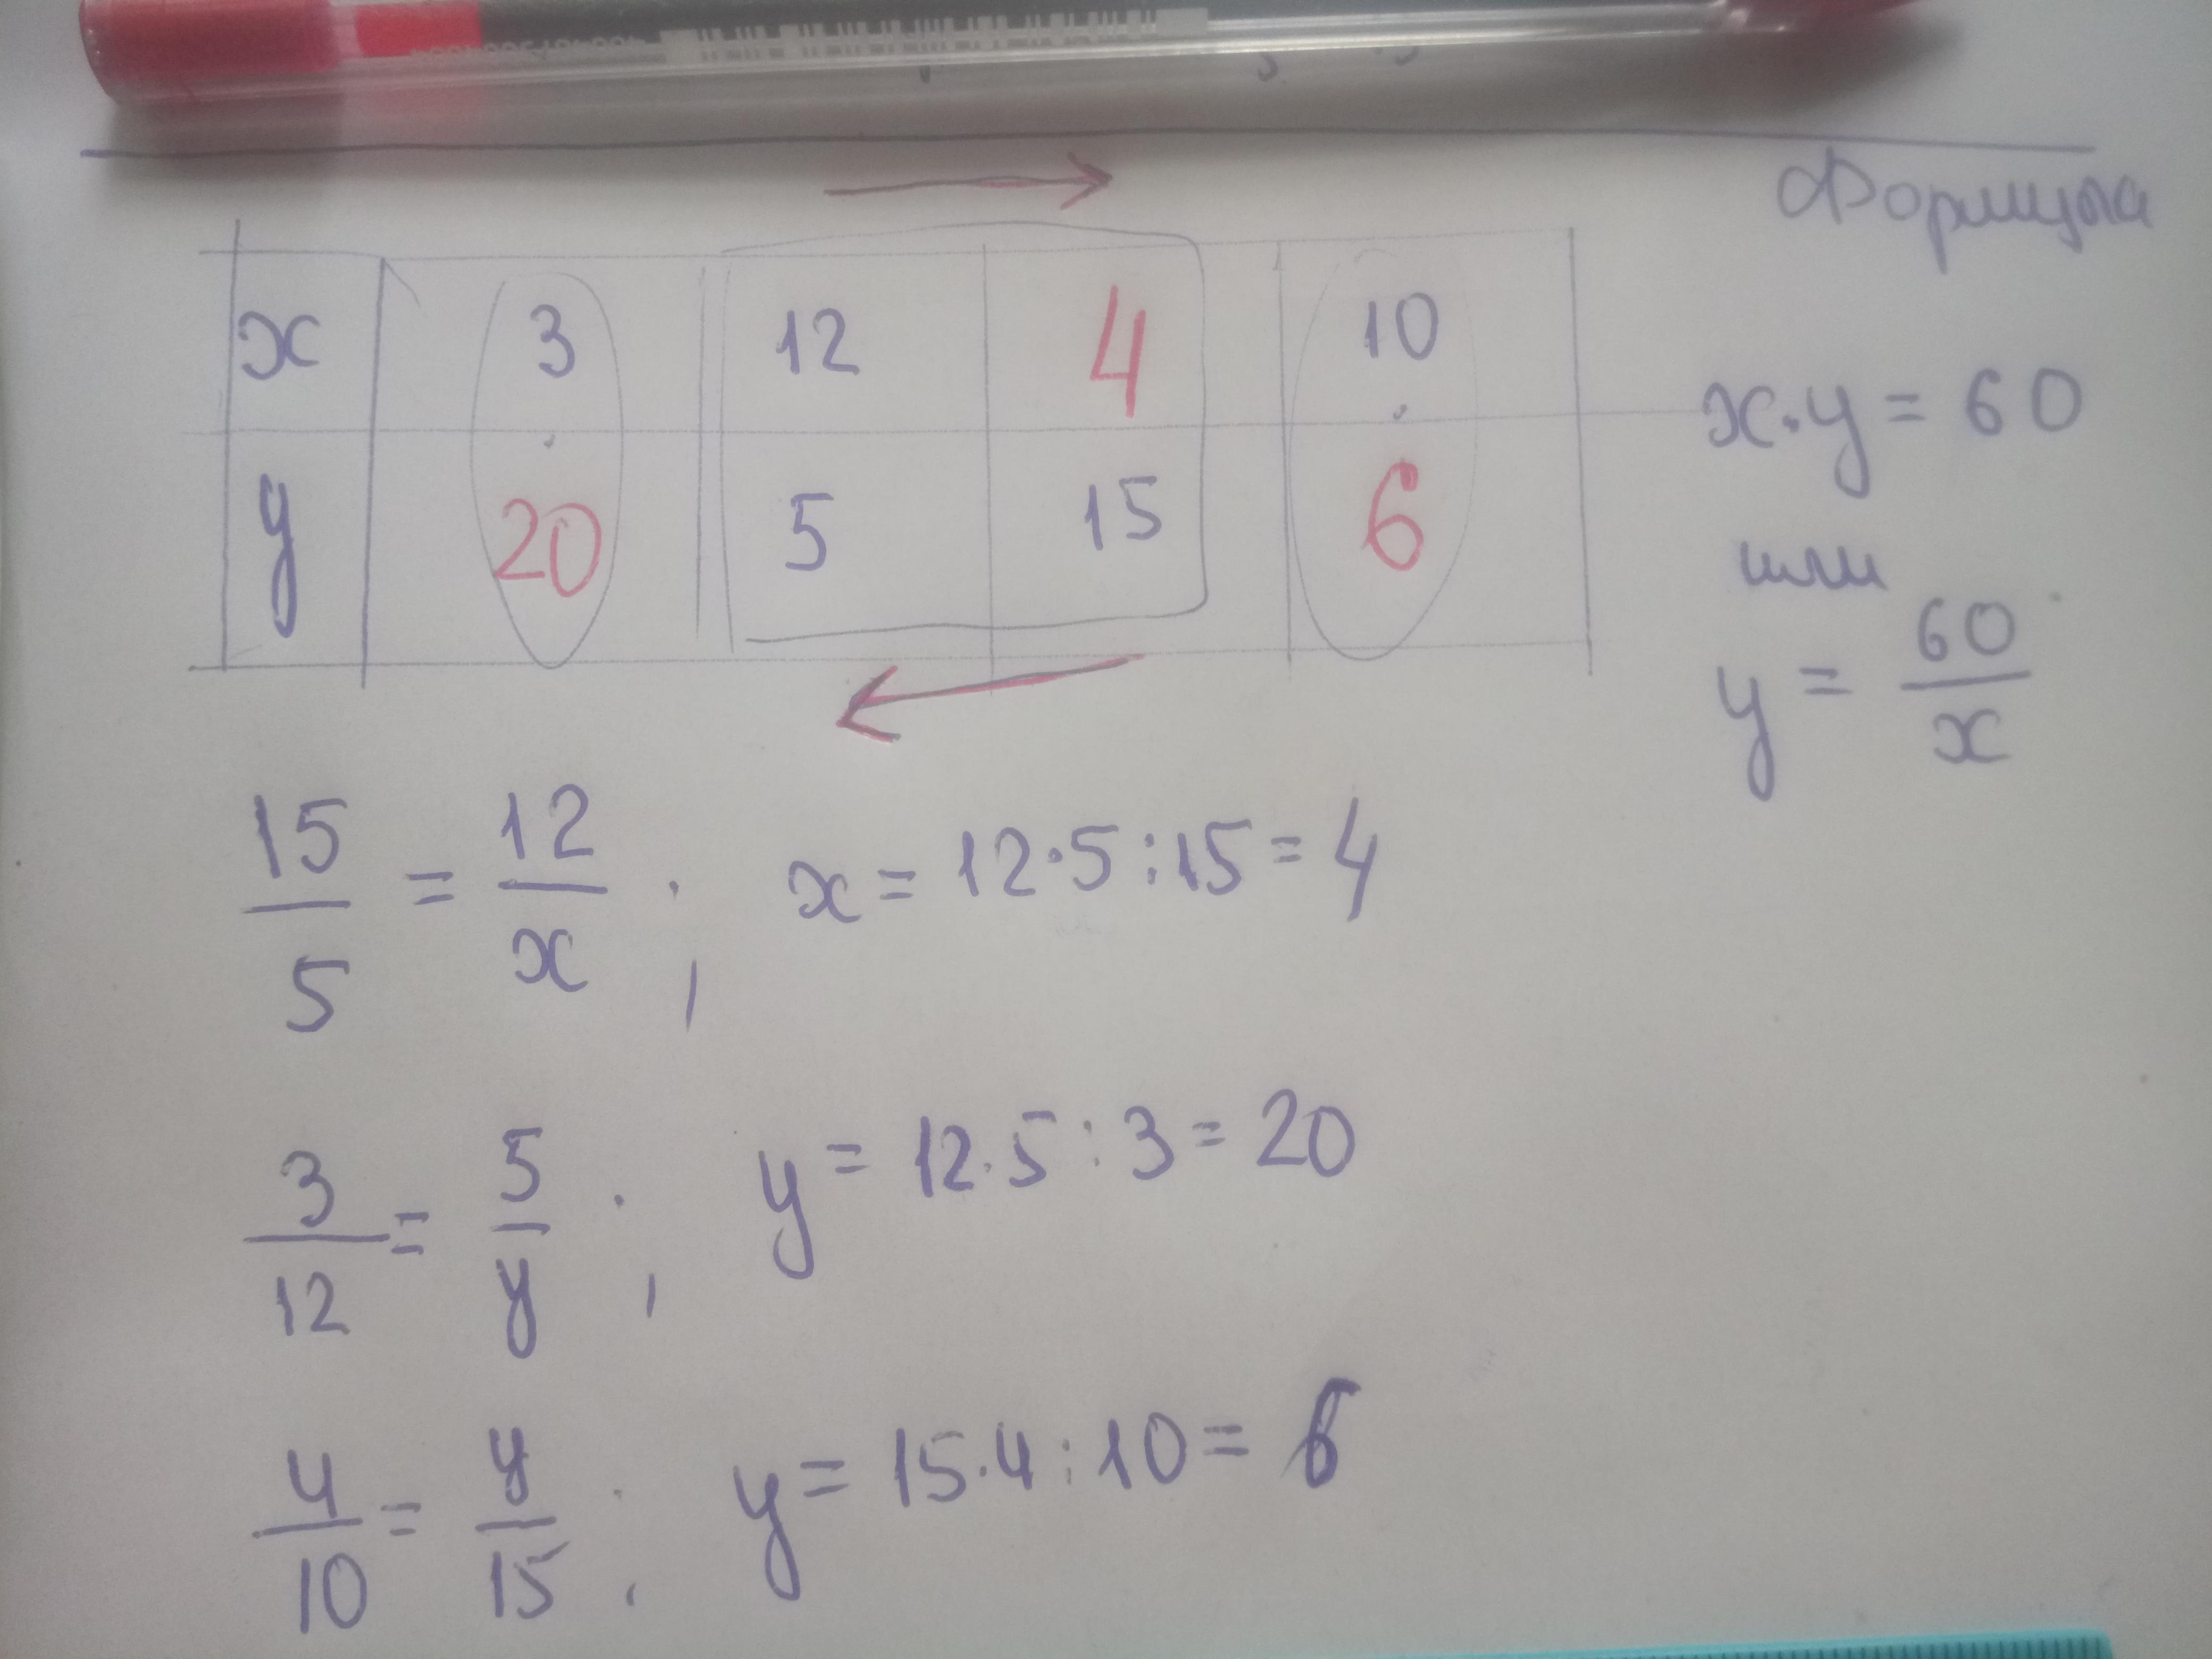 Формула
x 3 12 4 10
y 20 5 15 6
x·y = 60
или
y = 60/x
15/5 = 12/x ; x = 12·5:15 = 4
3/12 = 5/y ; y = 12·5:3 = 20
4/10 = y/15 ; y = 15·4:10 = 6